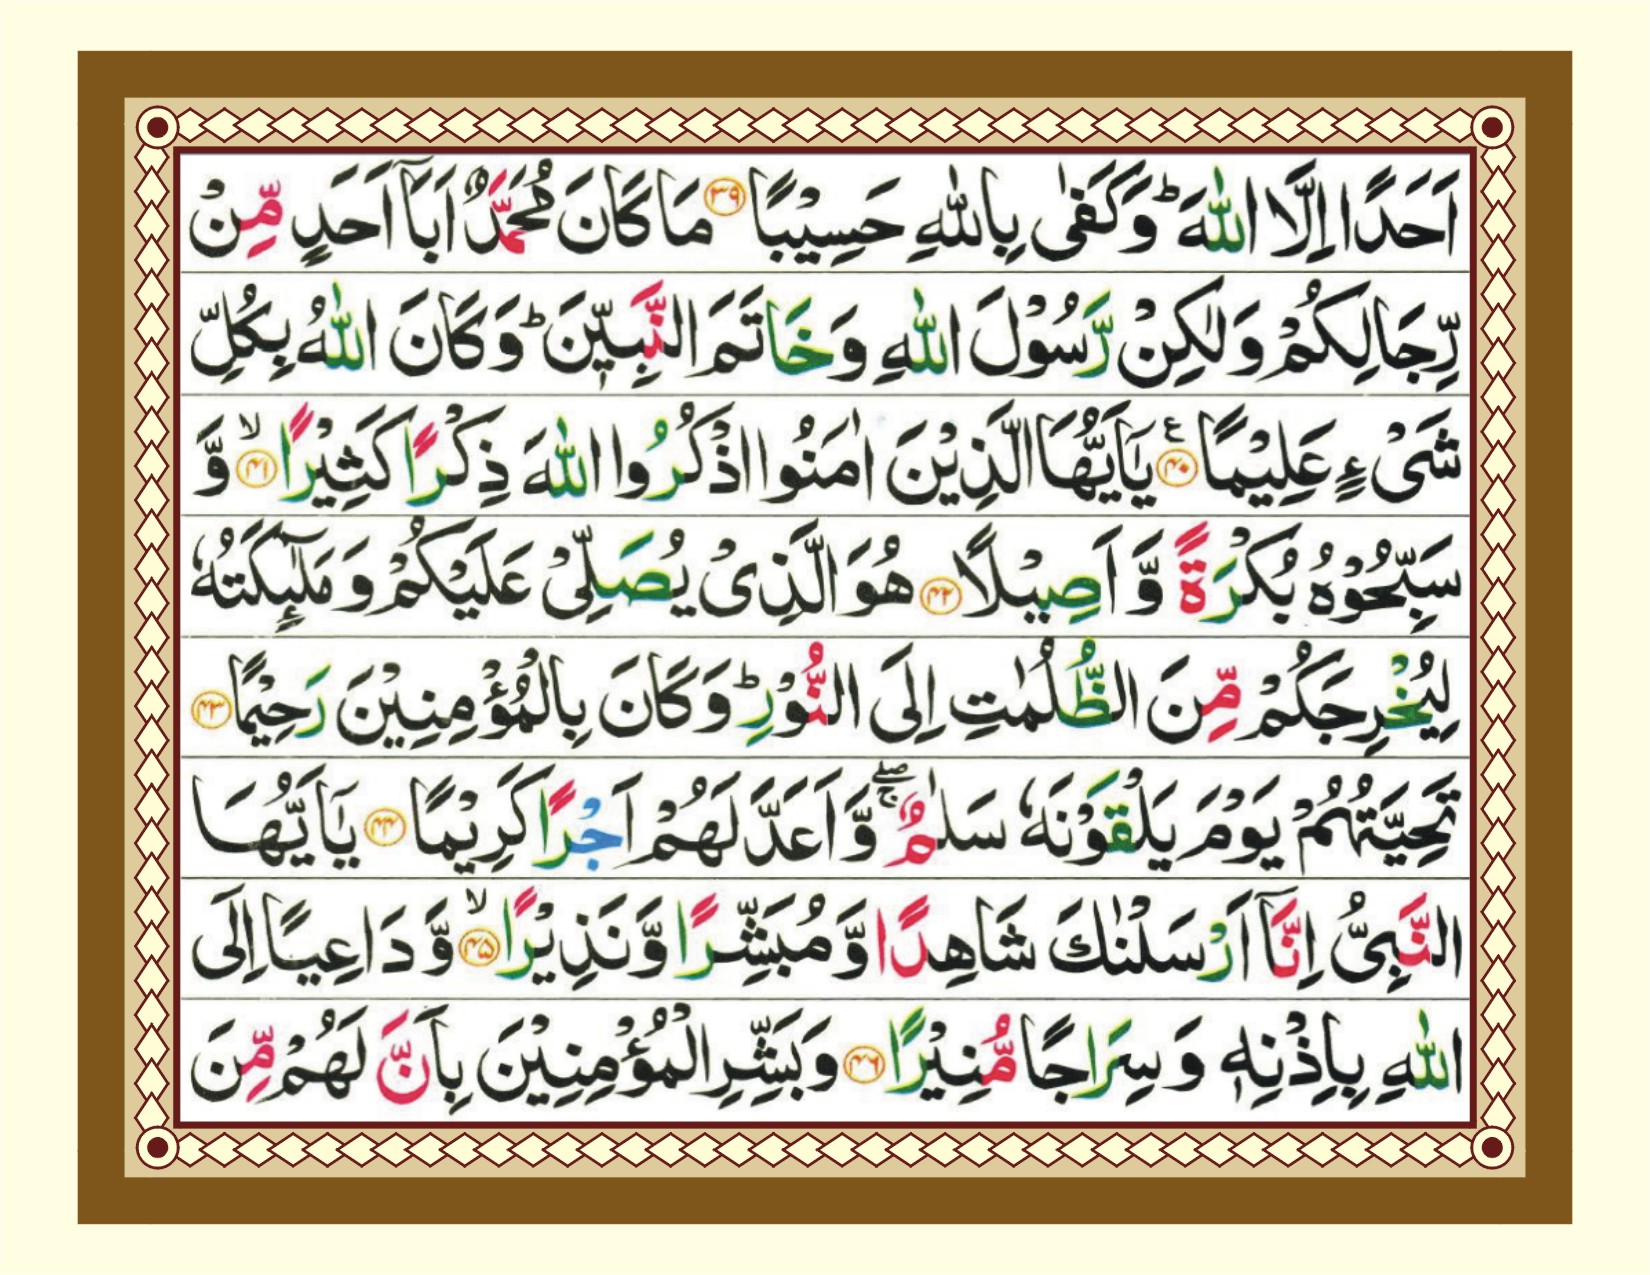 اَحَدًا اِلَّا اللّٰهَ ؕ وَكَفٰى بِاللّٰهِ حَسِيْبًا ۳۹ مَا كَانَ مُحَمَّدٌ اَبَآ اَحَدٍ مِّنْ
رِّجَالِكُمْ وَلٰكِنْ رَّسُوْلَ اللّٰهِ وَخَاتَمَ النَّبِيّٖنَ ؕ وَكَانَ اللّٰهُ بِكُلِّ
شَیْءٍ عَلِيْمًا ۴۰ ع يٰۤاَيُّهَا الَّذِيْنَ اٰمَنُوا اذْكُرُوا اللّٰهَ ذِكْرًا كَثِيْرًا ۴۱ ۙ وَّ
سَبِّحُوْهُ بُكْرَةً وَّ اَصِيْلًا ۴۲ هُوَ الَّذِیْ يُصَلِّیْ عَلَيْكُمْ وَ مَلٰٓئِكَتُهٗ
لِيُخْرِجَكُمْ مِّنَ الظُّلُمٰتِ اِلَى النُّوْرِ ؕ وَكَانَ بِالْمُؤْمِنِيْنَ رَحِيْمًا ۴۳
تَحِيَّتُهُمْ يَوْمَ يَلْقَوْنَهٗ سَلٰمٌ ۖۚ وَّ اَعَدَّ لَهُمْ اَجْرًا كَرِيْمًا ۴۴ يٰۤاَيُّهَا
النَّبِیُّ اِنَّاۤ اَرْسَلْنٰكَ شَاهِدًا وَّ مُبَشِّرًا وَّ نَذِيْرًا ۴۵ ۙ وَّ دَاعِيًا اِلَى
اللّٰهِ بِاِذْنِهٖ وَ سِرَاجًا مُّنِيْرًا ۴۶ وَبَشِّرِ الْمُؤْمِنِيْنَ بِاَنَّ لَهُمْ مِّنَ